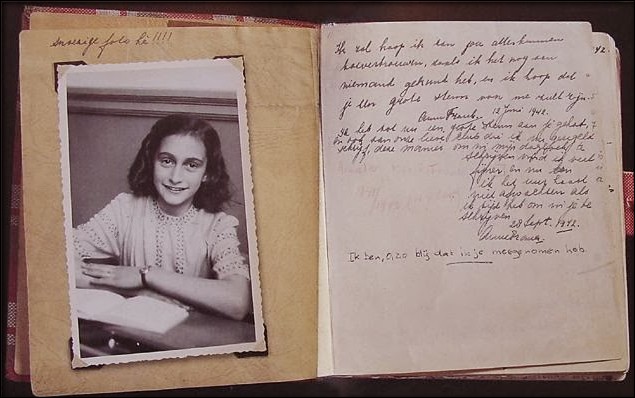 Snoezige foto hè !!!!
Ik zal hoop ik aan jou alles kunnen
toevertrouwen, zoals ik het nog aan
niemand gekund heb, en ik hoop dat
je een grote steun voor me zult zijn.
Anne Frank. 12 Juni 1942.
Ik heb tot nu een grote steun aan je gehad,
en ook aan onze lieve club die ik nu geregeld
schrijf, deze manier om in mijn dagboek te
schrijven vind ik veel
fijner en nu kan
ik het uur haast
niet afwachten als
ik tijd heb om in je te
schrijven.
28 Sept. 1942.
Anne Frank.
Ik ben, o, zo blij dat ik je meegenomen heb
42.